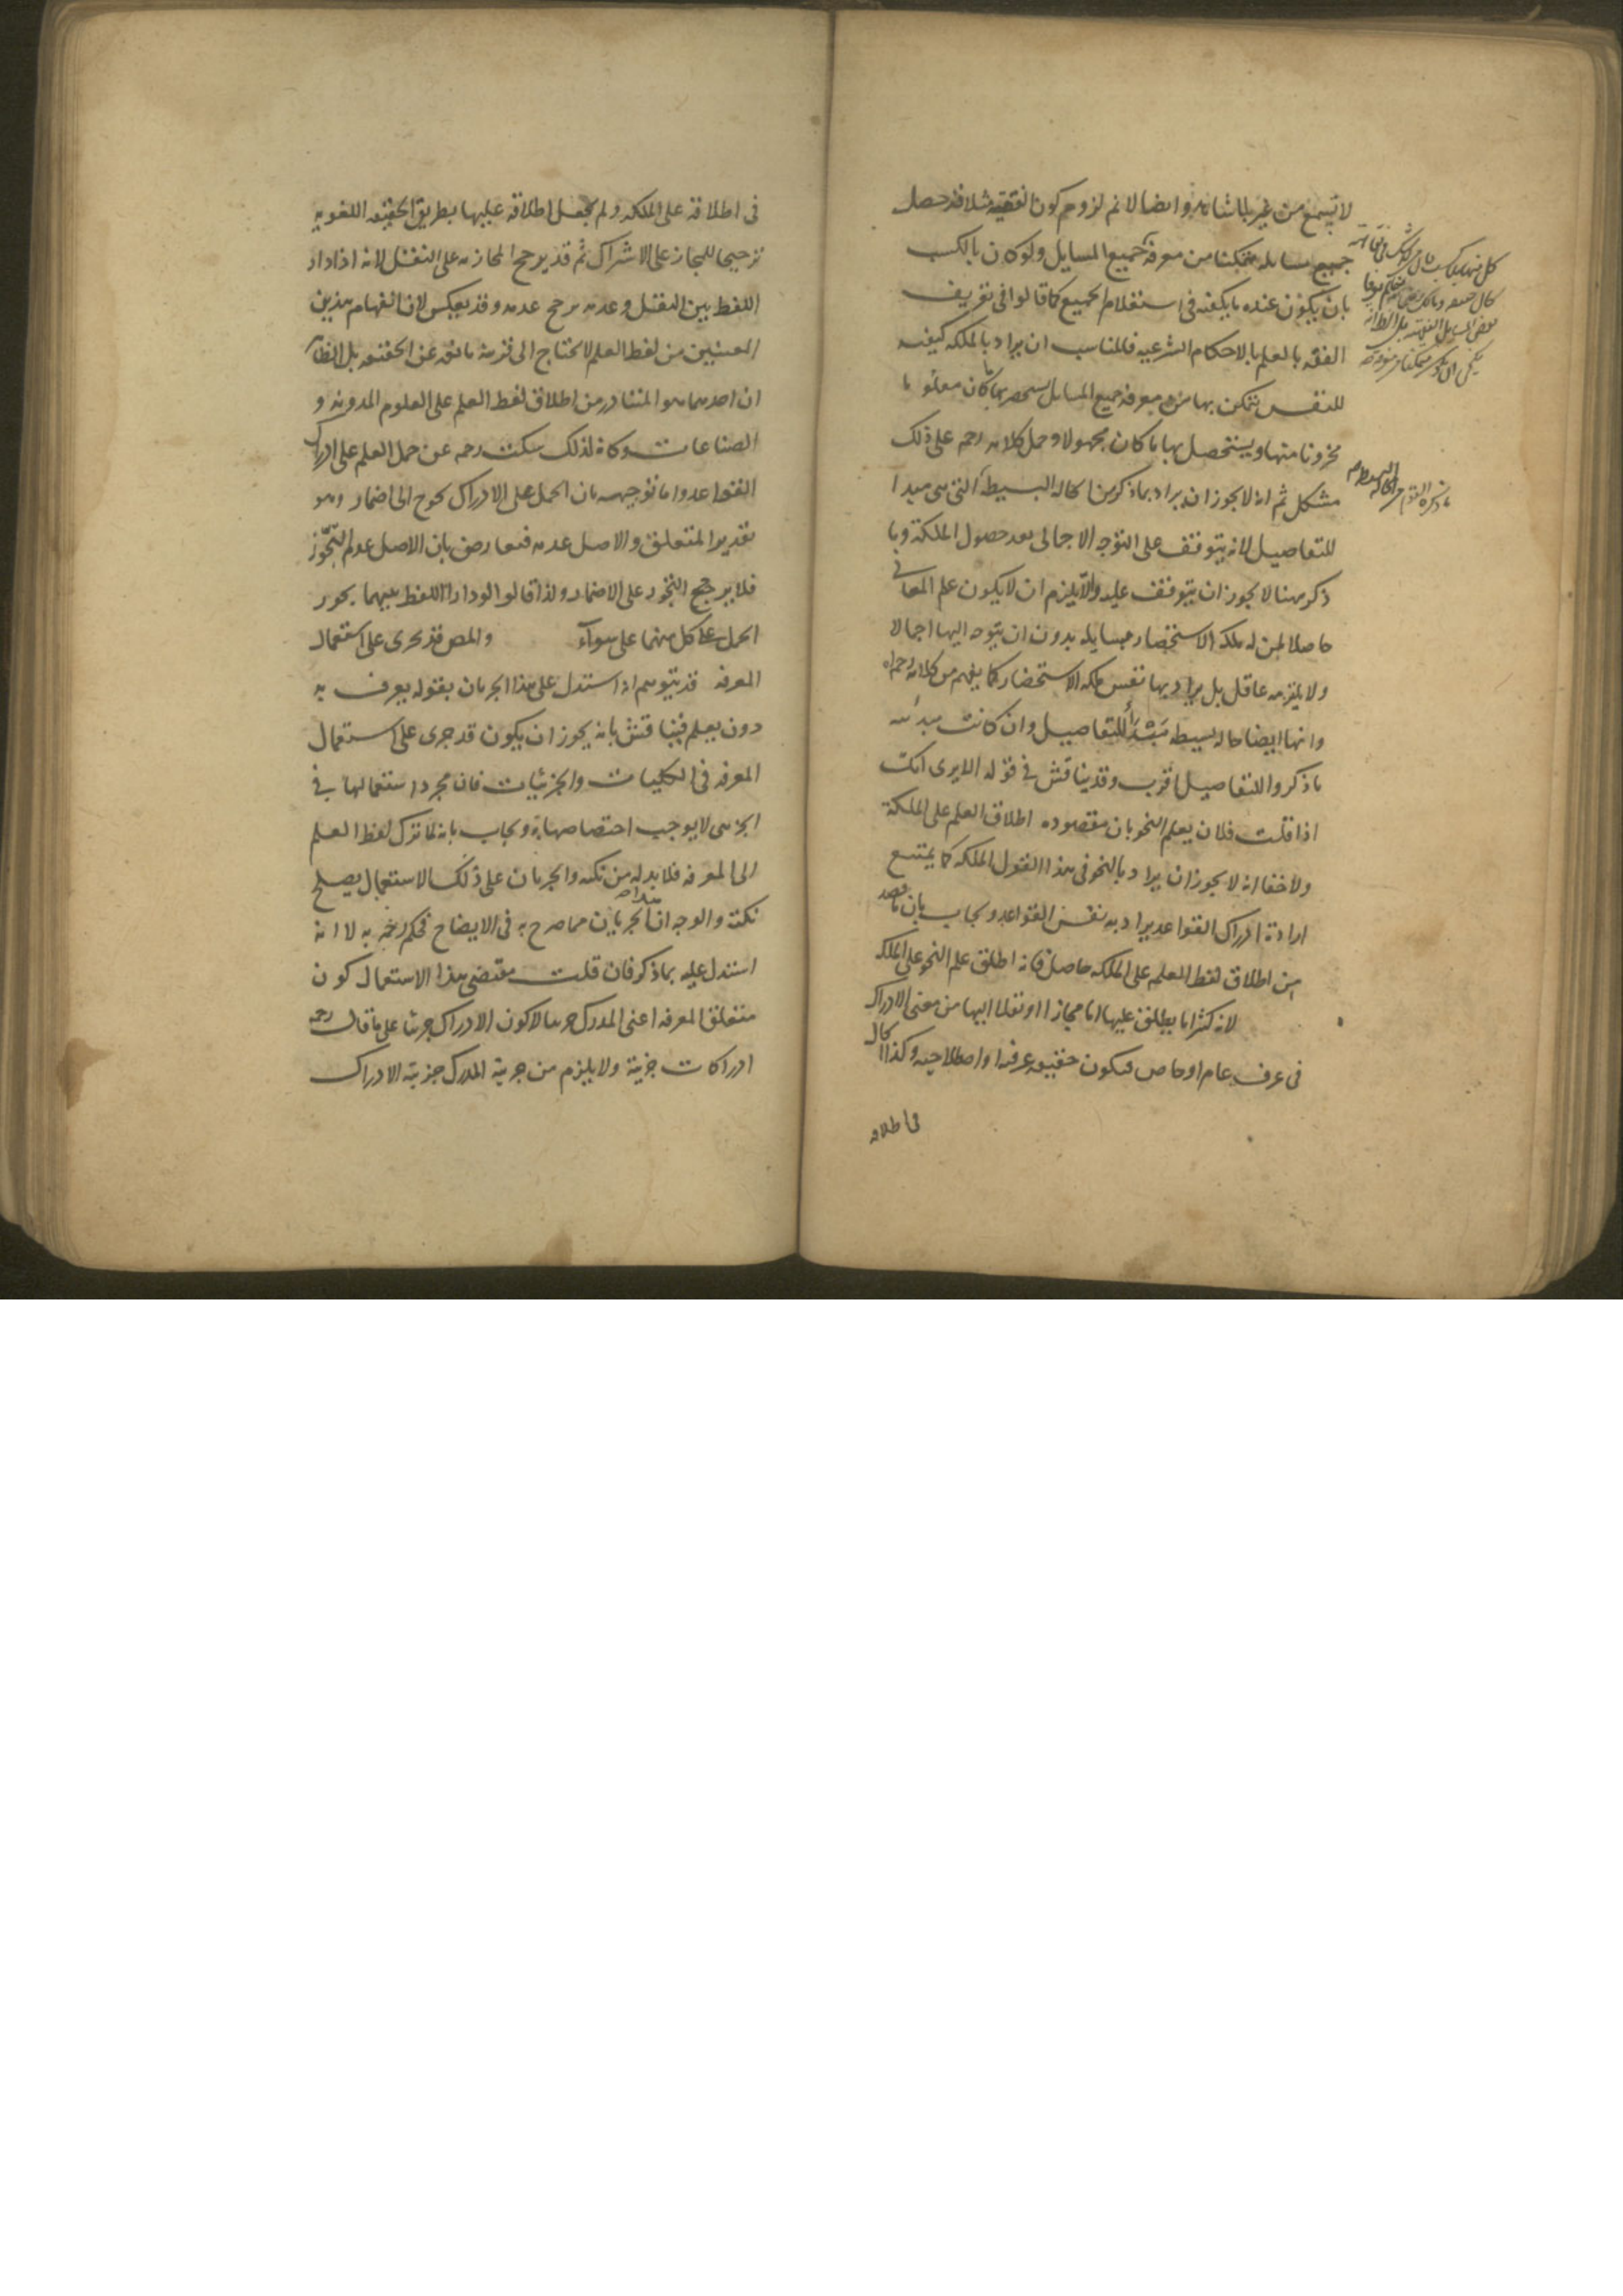 لا تسمع من غير بلا شاهد وايضا لا نم لزوم كون الفقيه مثلا قد حصل
جميع مسايله متمكنا من معرفة جميع المسايل ولو كان بالكسب
بان يكون عنده ما يكفيه في استعلام الجميع كما قالوا في تعريف
الفقه بالعلم بالاحكام الشرعيه فالمناسب ان يراد بالملكه كيفيه
للنفس تتمكن بها من معرفة جميع المسايل يستحضر بها ما كان معلوما
مخزونا منها ويستحصل بها ما كان مجهولا وحمل كلامه رحمه على ذلك
مشكل ثم انه لا يجوز ان يراد بما ذكر هنا الحاله البسيطة التي هي مبدا
للتفاصيل لانه يتوقف على التوجه الاجمالى بعد حصول الملكة وما
ذكر هنا لا يجوز ان يتوقف عليه والا يلزم ان لا يكون علم المعاني
حاصلا لمن له ملكه الاستحضار مسايله بدون ان يتوجه اليها اجمالا
ولا يلتزمه عاقل بل يراد بها نفس ملكه الاستحضار كما يفهم من كلامه رحمه الله
وانها ايضا حاله بسيطه مبدأ للتفاصيل وان كانت مبدئيه
ما ذكروا للتفاصيل اقرب وقد يناقش في قوله الا يرى انك
اذا قلت فلان يعلم النحو بان مقصوده اطلاق العلم على الملكة
ولا خفا انه لا يجوز ان يراد بالنحو في هذا القول الملكه كما يمتنع
ارادة ادراك القواعد يراد به نفس القواعد ويجاب بان ما قصد
من اطلاق لفظ العلم على الملكه حاصل فانه اطلق علم النحو على الملكه
لانه كثيرا ما يطلق عليها اما مجازا او نقلا اليها من معنى الادراك
في عرف عام او خاص فيكون حقيقه عرفيه او اصطلاحيه وكذا الحال
في اطلاقه
ما ذكره القوم من الحاله البسيطه
في اطلاقه على الملكه ولم يجعل اطلاقه عليها بطريق الحقيقه اللغويه
ترجيحا للمجاز على الاشتراك ثم قد يرجح المجازيه على النقل لانه اذا دار
اللفظ بين النقل وعدمه يرجح عدمه وقد يعكس لان انفهام هذين
المعنيين من لفظ العلم لا يحتاج الى قرينة مانعه عن الحقيقه بل الظاهر
ان احدهما هو المتبادر من اطلاق لفظ العلم على العلوم المدونه و
الصناعات وكانه لذلك سكت رحمه عن حمل العلم على ادراك
القواعد واما توجيهه بان الحمل على الادراك يحوج الى اضمار وهو
تقدير المتعلق والاصل عدمه فمعارض بان الاصل عدم التجوز
فلا يرجح التجوز على الاضمار ولذا قالوا لو دار اللفظ بينهما يجوز
الحمل على كل منهما على سواء والمص قد جرى على استعمال
المعرفه قد يتوهم انه استدل على هذا الجريان بقوله يعرف به
دون يعلم فيناقش بانه يجوز ان يكون قد جرى على استعمال
المعرفه في الكليات والجزئيات فان مجرد استعمالها في
الجزئي لا يوجب اختصاصها به ويجاب بانه لما ترك لفظ العلم
الى المعرفه فلا بد له من نكته والجريان على ذلك الاستعمال يصلح
نكتة والوجه ان الجريان مما صرح به في الايضاح فحكم رحمه به لا انه
استدل عليه بما ذكر فان قلت مقتضى هذا الاستعمال كون
متعلق المعرفه اعنى المدرك جزئيا لا كون الادراك جزئيا على ما قال رحمه
ادراكات جزئية ولا يلزم من جزئية المدرك جزئية الادراك